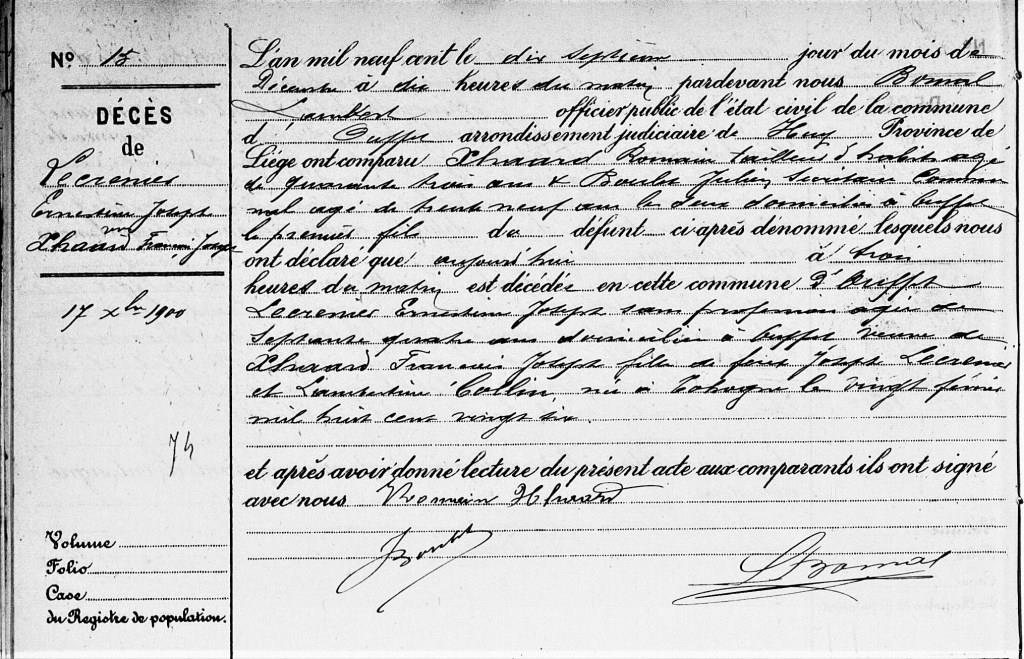 N° 15
DÉCÈS
de
Lecrenier
Ernestine Joseph
vve
Xhaard François Joseph
17 xbre 1900
74
Volume
Folio
Case
du Registre de population.
L'an mil neuf cent le dix septième jour du mois de
Décembre à dix heures du matin pardevant nous Bomal
Lambert officier public de l'état civil de la commune
d' Ouffet arrondissement judiciaire de Huy Province de
Liége ont comparu Xhaard Romain tailleur d'habits agé
de quarante trois ans & Boulet Julien Secrétaire Commu
nal agé de trente neuf ans le deux domiciliés à Ouffet
le premier fils de défunt ci après dénommé lesquels nous
ont déclaré que aujourd'hui à trois
heures du matin est décédée en cette commune d'Ouffet
Lecrenier Ernestine Joseph sans profession agée de
Septante quatre ans domiciliée à Ouffet veuve de
Xhaard François Joseph fille de feus Joseph Lecrenier
et Lambertine Collin, née à Tohogne le vingt février
mil huit cent vingt six.
et après avoir donné lecture du présent acte aux comparants ils ont signé
avec nous Romain Xhaard
JBoulet
LBomal